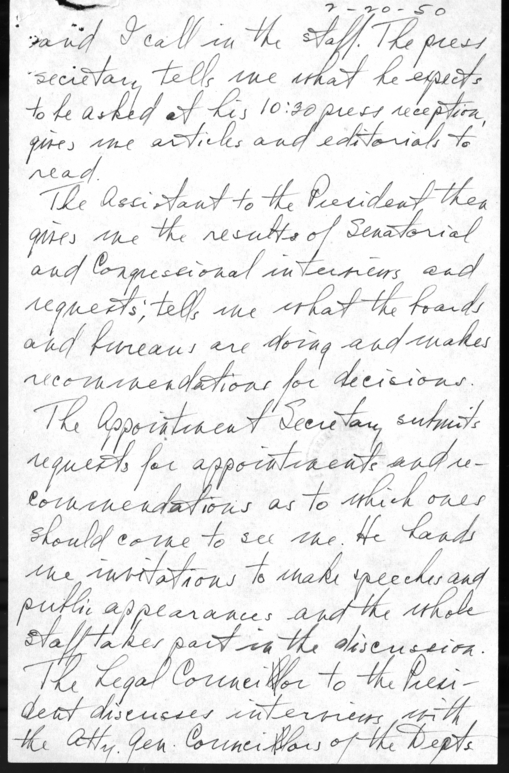 2-20-50
and I call in the staff. The press
secretary tells me what he expects
to be asked at his 10:30 press reception,
gives me articles and editorials to
read.
The Assistant to the President then
gives me the results of Senatorial
and Congressional interviews and
requests; tells me what the boards
and bureaus are doing and makes
recommendations for decisions.
The Appointment Secretary submits
requests for appointments and re-
commendations as to which ones
should come to see me. He hands
me invitations to make speeches and
public appearances and the whole
staff takes part in the discussion.
The Legal Councillor to the Presi-
dent discusses interviews, with
the Atty. Gen. Councillors of the Depts